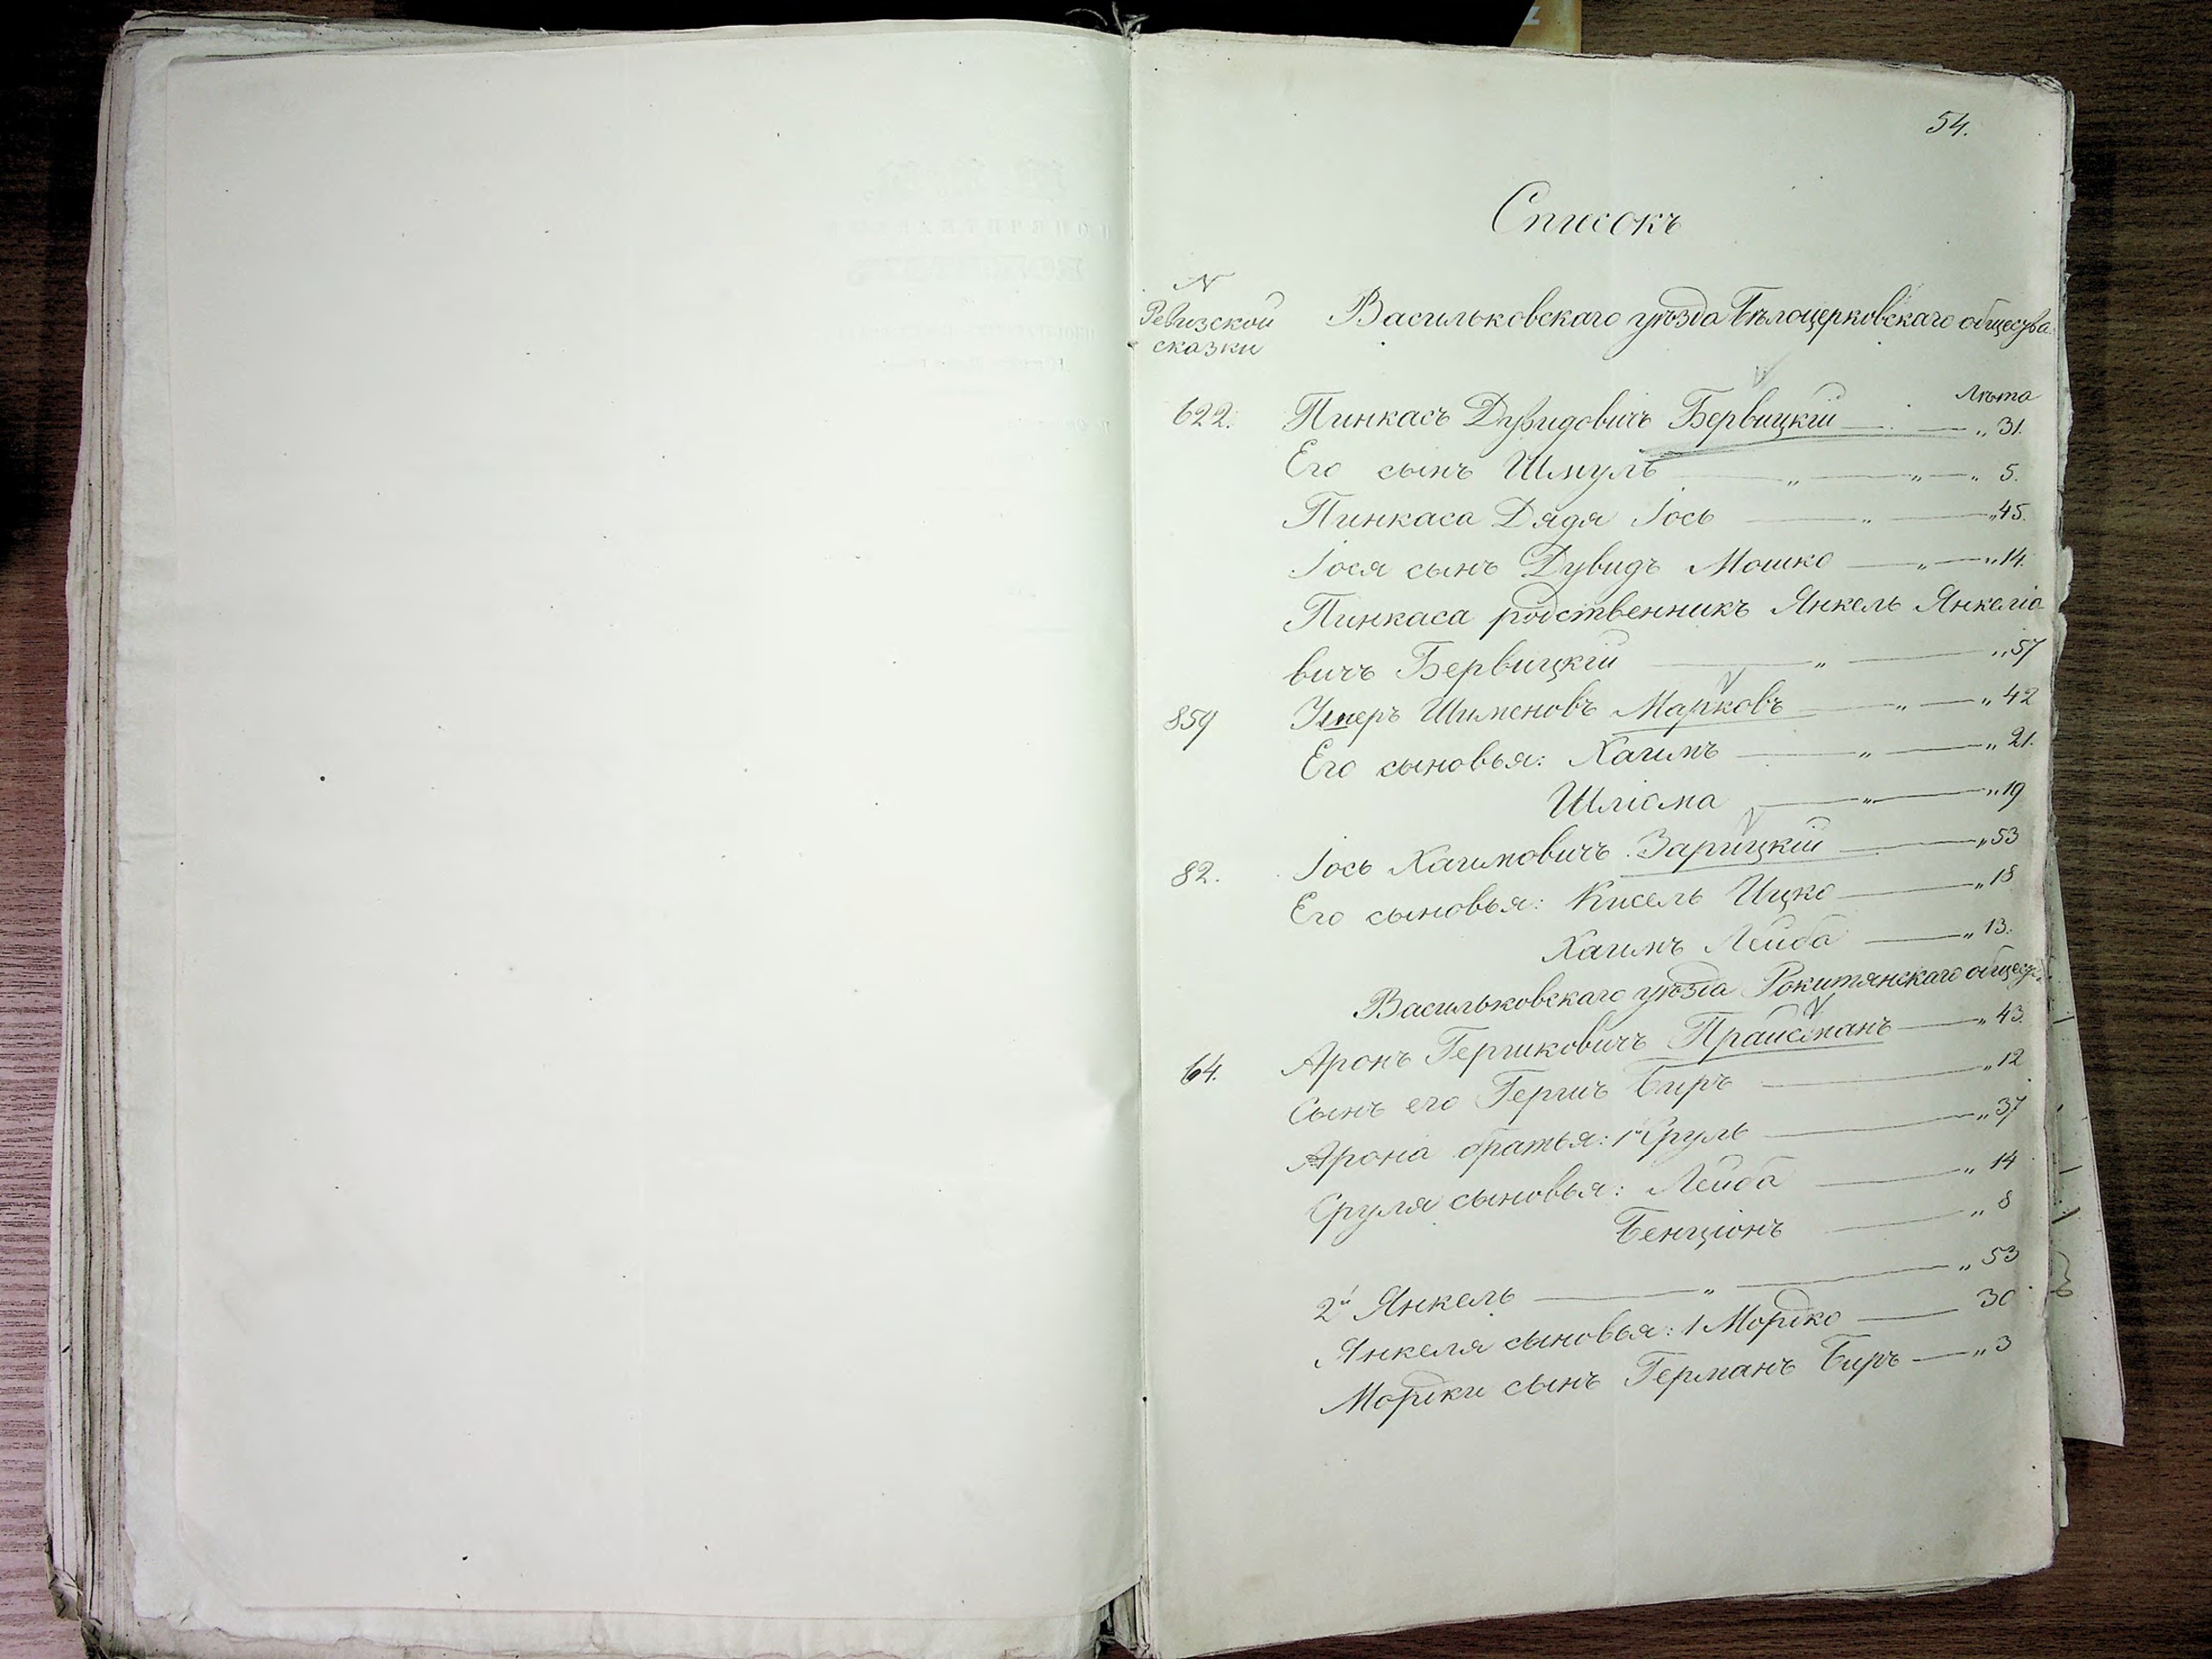 54.
Списокъ
N
Ревизской
сказки
Васильковскаго уѣзда Бѣлоцерковскаго общества
Лѣта
622. Пинкасъ Дувидовичъ Бервицкій — „ 31.
Его сынъ Шмуль — „ — „ — „ 5.
Пинкаса Дядя Іось — „ — „ 45.
Іося сынъ Дувидъ Мошко — „ — „ 14.
Пинкаса родственникъ Янкель Янкеліо
вичъ Бервицкій — „ — „ 57
859 Шименовъ Марковъ — „ — „ 42
Его сыновья: Хаимъ — „ — „ 21.
Шліома — „ — „ 19
82. Іось Хаимовичъ Зарицкій — „ 53
Его сыновья: Кисель Ицко — „ 18
Хаимъ Лейба — „ 13.
Васильковскаго уѣзда Рокитянскаго общест.
64. Аронъ Гершковичъ Прайсманъ — „ 43.
Сынъ его Гершъ Биръ — „ 12
Арона братья: 1й Сруль — „ 37
Сруля сыновья: Лейба — „ 14
Бенціонъ — „ 8
2й Янкель — „ — „ 53
Янкеля сыновья: 1 Мордко — 30
Мордки сынъ Германъ Биръ — „ 3